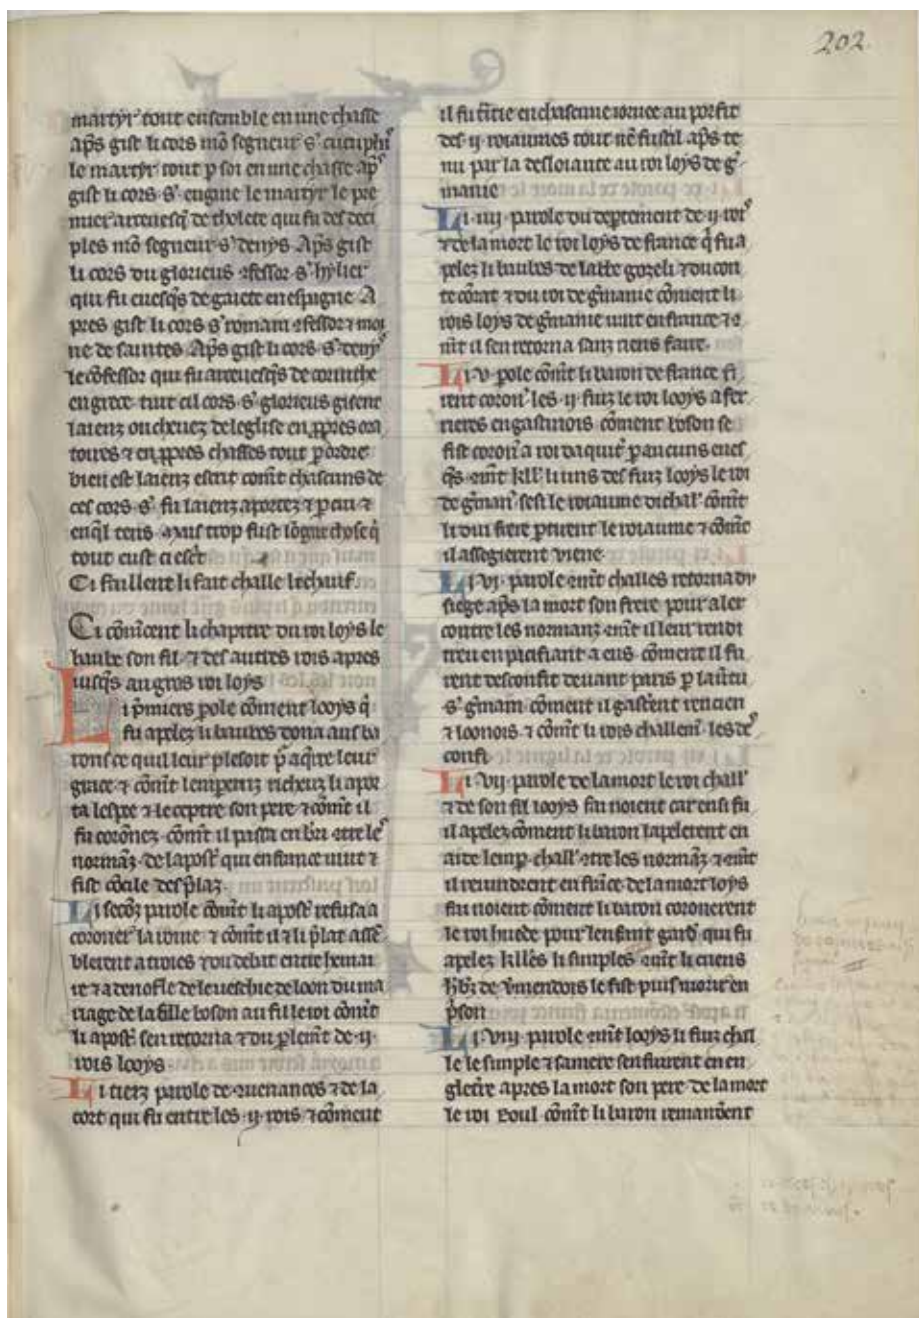 202.
martyr tout ensemble en une chasse
aps gist li cors mō segneur s' cucuphī
le martyr tout p soi en une chasse ap'
gist li cors s' eugine le martyr le pre
mier arcevesq' de tholete qui fu des deci
ples mō segneur s' denys Aps gist
li cors du glorieus ꝯfessor s' hylier
qui fu evesq's de gaiete en espugne A
pres gist li cors s' romain ꝯfessor ⁊ moi
ne de saintes Aps gist li cors s' deny'
le cōfessor qui fu arcevesq's de corinthe
en grece tuit cil cors s' glorieus gisent
laienz ou chevez de leglise en ꝓpres ora
toires ⁊ en ꝓpres chasses tout p ordre
bien est laienz escrit comt chascuns de
ces cors s' fu laienz aportez ⁊ p cui ⁊
en ql tens mais trop fust lōgue chose q̄
tout eust ci esc't
Ci faillent li fait challe le chauf.
Ci cōm̄cent li chapitre du roi loys le
baube son fil ⁊ des autres rois apres
iusq's au gros roi loys
Li p̄miers pole cōment looys q'
fu apelez li baubes dona aus ba
rons ce quil leur plesoit p aq're leur
grace ⁊ cōmt lempeiriz richeuz li apor
ta lespee ⁊ le ceptre son pere ⁊ cōmt il
fu coronez cōmt il passa en b'ri ꝯtre le'
normāz de lapost' qui en france vint ⁊
fist cōcile des p̄laz
Li secōz parole cōmt li apost' refusa a
coroner la roine ⁊ cōmt il ⁊ li p̄lat assē
blerent a troies ⁊ du debat entre hemar
re ⁊ adenofle de leveschie de loon du ma
riage de la fille boson au fil le roi cōmt
li apost' sen retorna ⁊ du plemt de ij
rois looys
Li tierz parole de ꝯvenances ⁊ de la
cort qui fu entre les ij rois ⁊ cōment
il fu t'itie en chascune iornee au porfit
des ij roiaumes tout ne fust il aps te
nu par la desloiaute au roi loys de g'
manie
Li iiij parole du deptement de ij roi'
⁊ de la mort le roi loys de france q̄ fu a
pelez li baubes de labbe gozeli ⁊ du con
te cōrat ⁊ du roi de g'manie cōment li
rois loys de g'manie vint en france ⁊ ꝯ
m̄t il sen retorna sanz riens faire
Li v pole cōmt li baron de france fi
rent coron' les ij fiuz le roi looys a fer
rieres en gastinois cōment boson se
fist coron' a roi daquit' p aucuns eves
q's ꝯmt kll' li uns des fiuz looys le roi
de g'man' sesi le roiaume dichal' cōmt
li dui frere p'tirent le roiaume ⁊ cōmt
il assegierent viene
Li vj parole ꝯmt challes retorna du
siege aps la mort son frere pour aler
contre les normanz ꝯmt il leur rendi
treu en pacifiant a eus cōment il fu
rent desconfit devant paris p lav'tu
s' g'main cōment il gasterent rencien
⁊ loonois ⁊ cōmt li rois challem' les de'
confi
Li vij parole de la mort le roi chall'
⁊ de son fil looys fai noient car ensi fu
il apelez cōment li baron lapelerent en
aide lemp chall' ꝯtre les normāz ⁊ ꝯmt
il revindrent en frāce de la mort loys
fai noient cōment li baron coronerent
le roi huede pour lenfant gard' qui fu
apelez kllēs li simples ꝯmt li cuens
hb'rz de v'mendois le fist puis morir en
p'son
Li viij parole ꝯmt looys li fiuz chal
le le simple ⁊ sa mere senfuirent en en
glet're apres la mort son pere de la mort
le roi Roul cōmt li baron remanderent